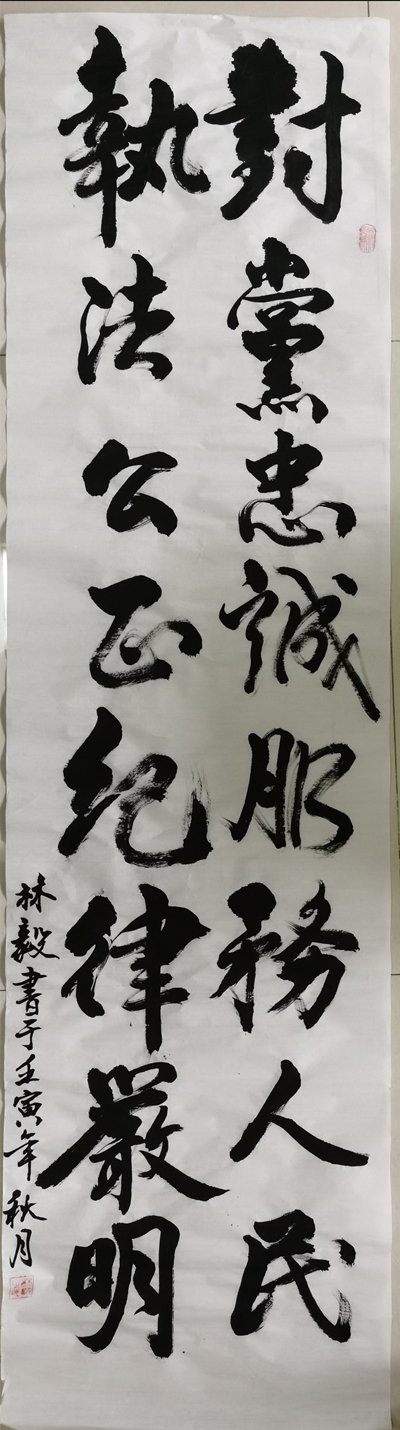 對黨忠誠服務人民
執法公正紀律嚴明
林毅書于壬寅年秋月